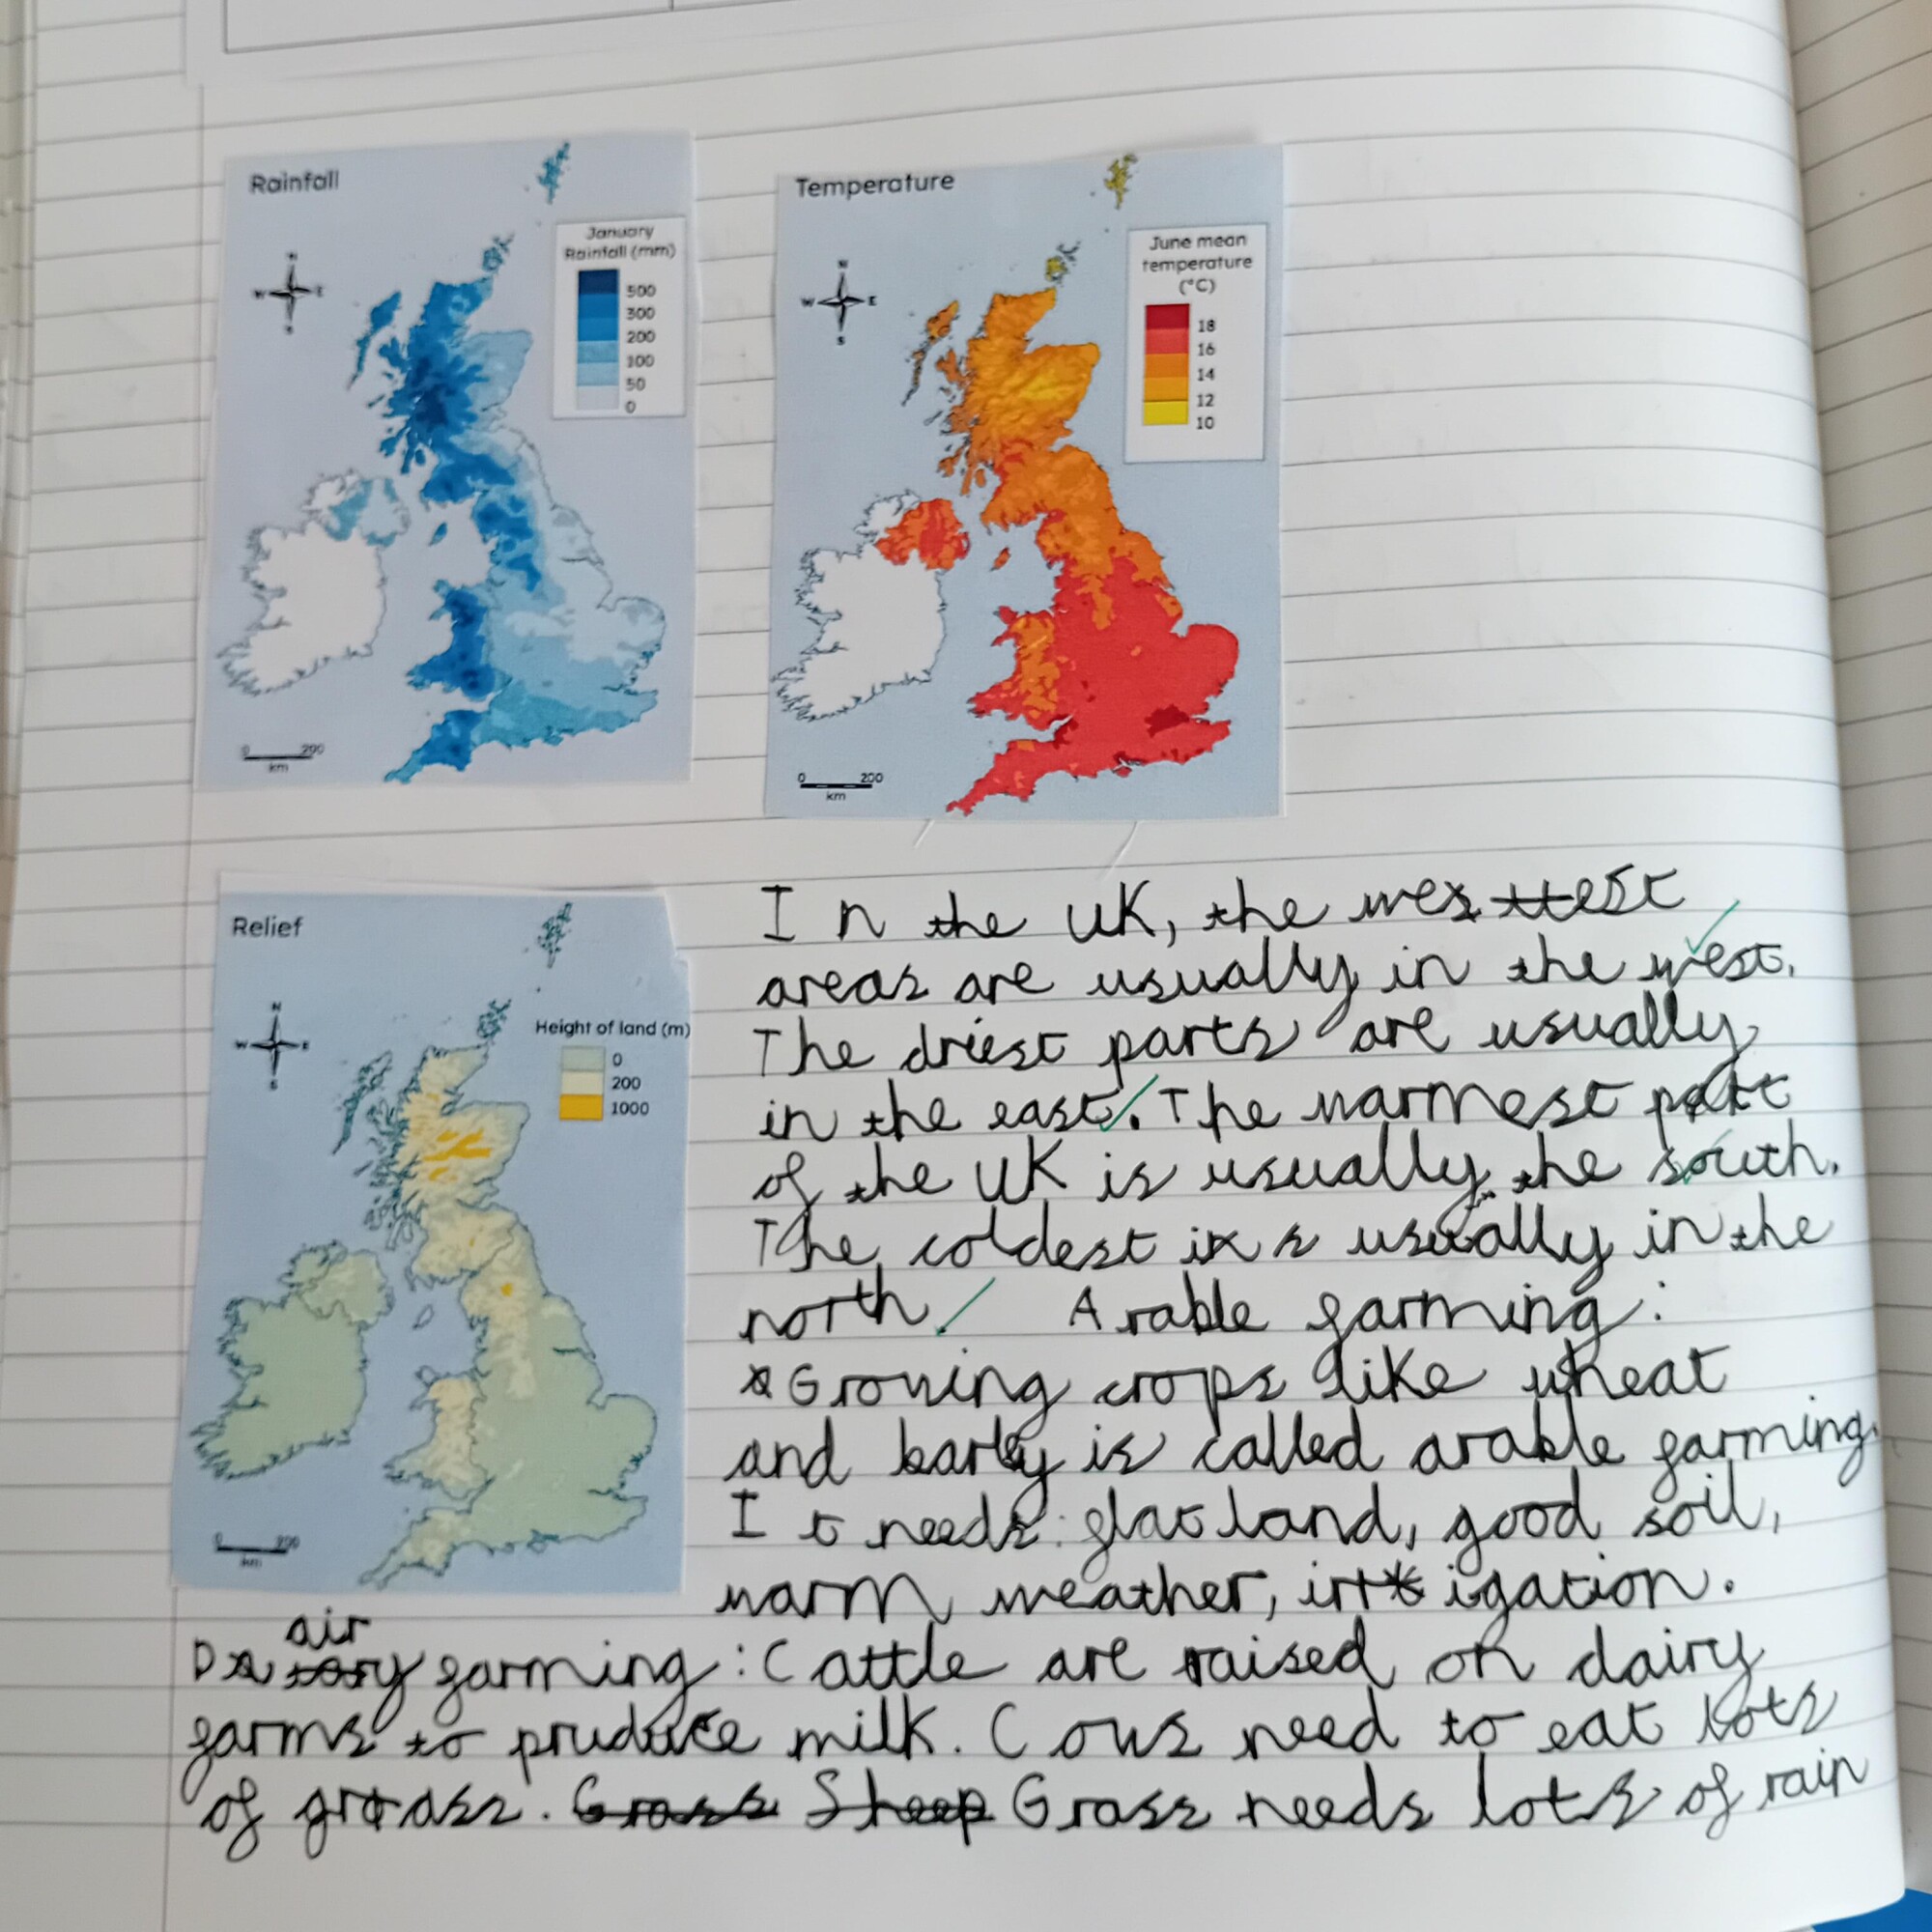 Rainfall
January
Rainfall (mm)
500
300
200
100
50
0
N
W E
S
0 200
km
Temperature
June mean
temperature
(°C)
18
16
14
12
10
N
W E
S
0 200
km
Relief
Height of land (m)
0
200
1000
N
W E
S
0 200
km
In the UK, the wettest
areas are usually in the west.
The driest parts are usually
in the east. The warmest part
of the UK is usually the south.
The coldest is usually in the
north. Arable farming:
Growing crops like wheat
and barley is called arable farming.
It needs: flat land, good soil,
warm weather, irrigation.
Dairy farming: Cattle are raised on dairy
farms to pruduce milk. Cows need to eat lots
of grass. Grass Sheep Grass needs lots of rain